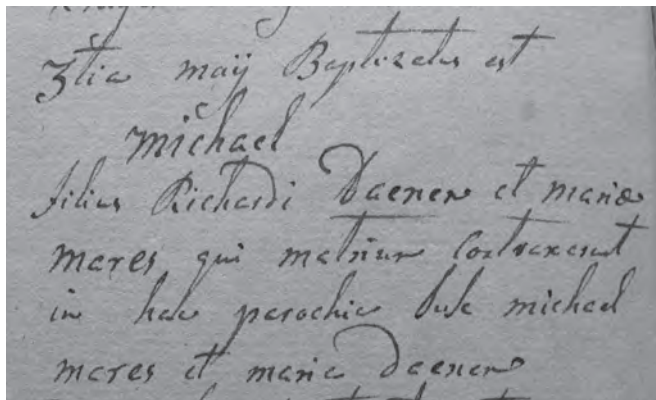 3tia maij Baptizatus est
michael
filius Richardi Daenen et mariæ
mares qui matrium Contraxerunt
in hac parochia susc michael
mares et maria Daenen